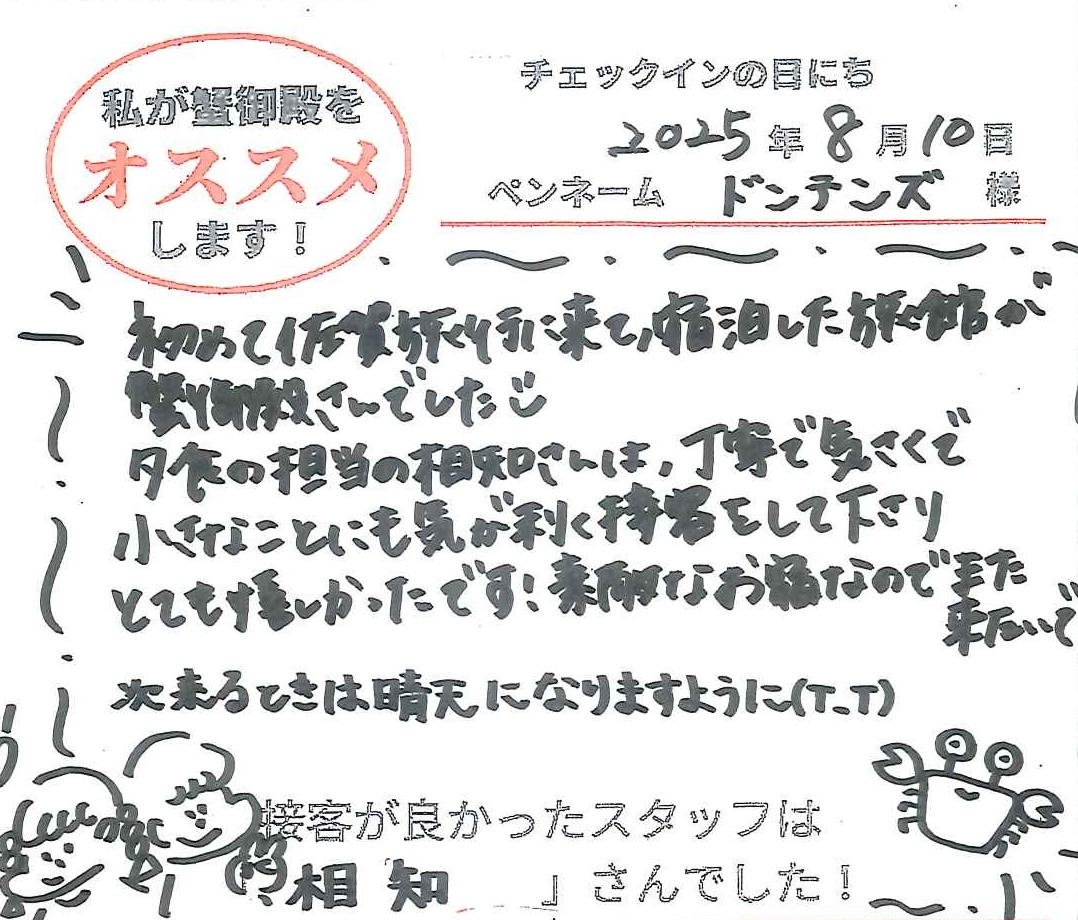 私が蟹御殿を
オススメ
します！
チェックインの日にち
2025年8月10日
ペンネーム ドンテンズ 様
初めて佐賀旅行に来て、宿泊した旅館が
蟹御殿さんでした
夕食の担当の相知さんは、丁寧で気さくで
小さなことにも気が利く接客をして下さり
とても嬉しかったです！素敵なお宿なのでまた
来たいで
次来るときは晴天になりますように(T_T)
接客が良かったスタッフは
相知 」さんでした！